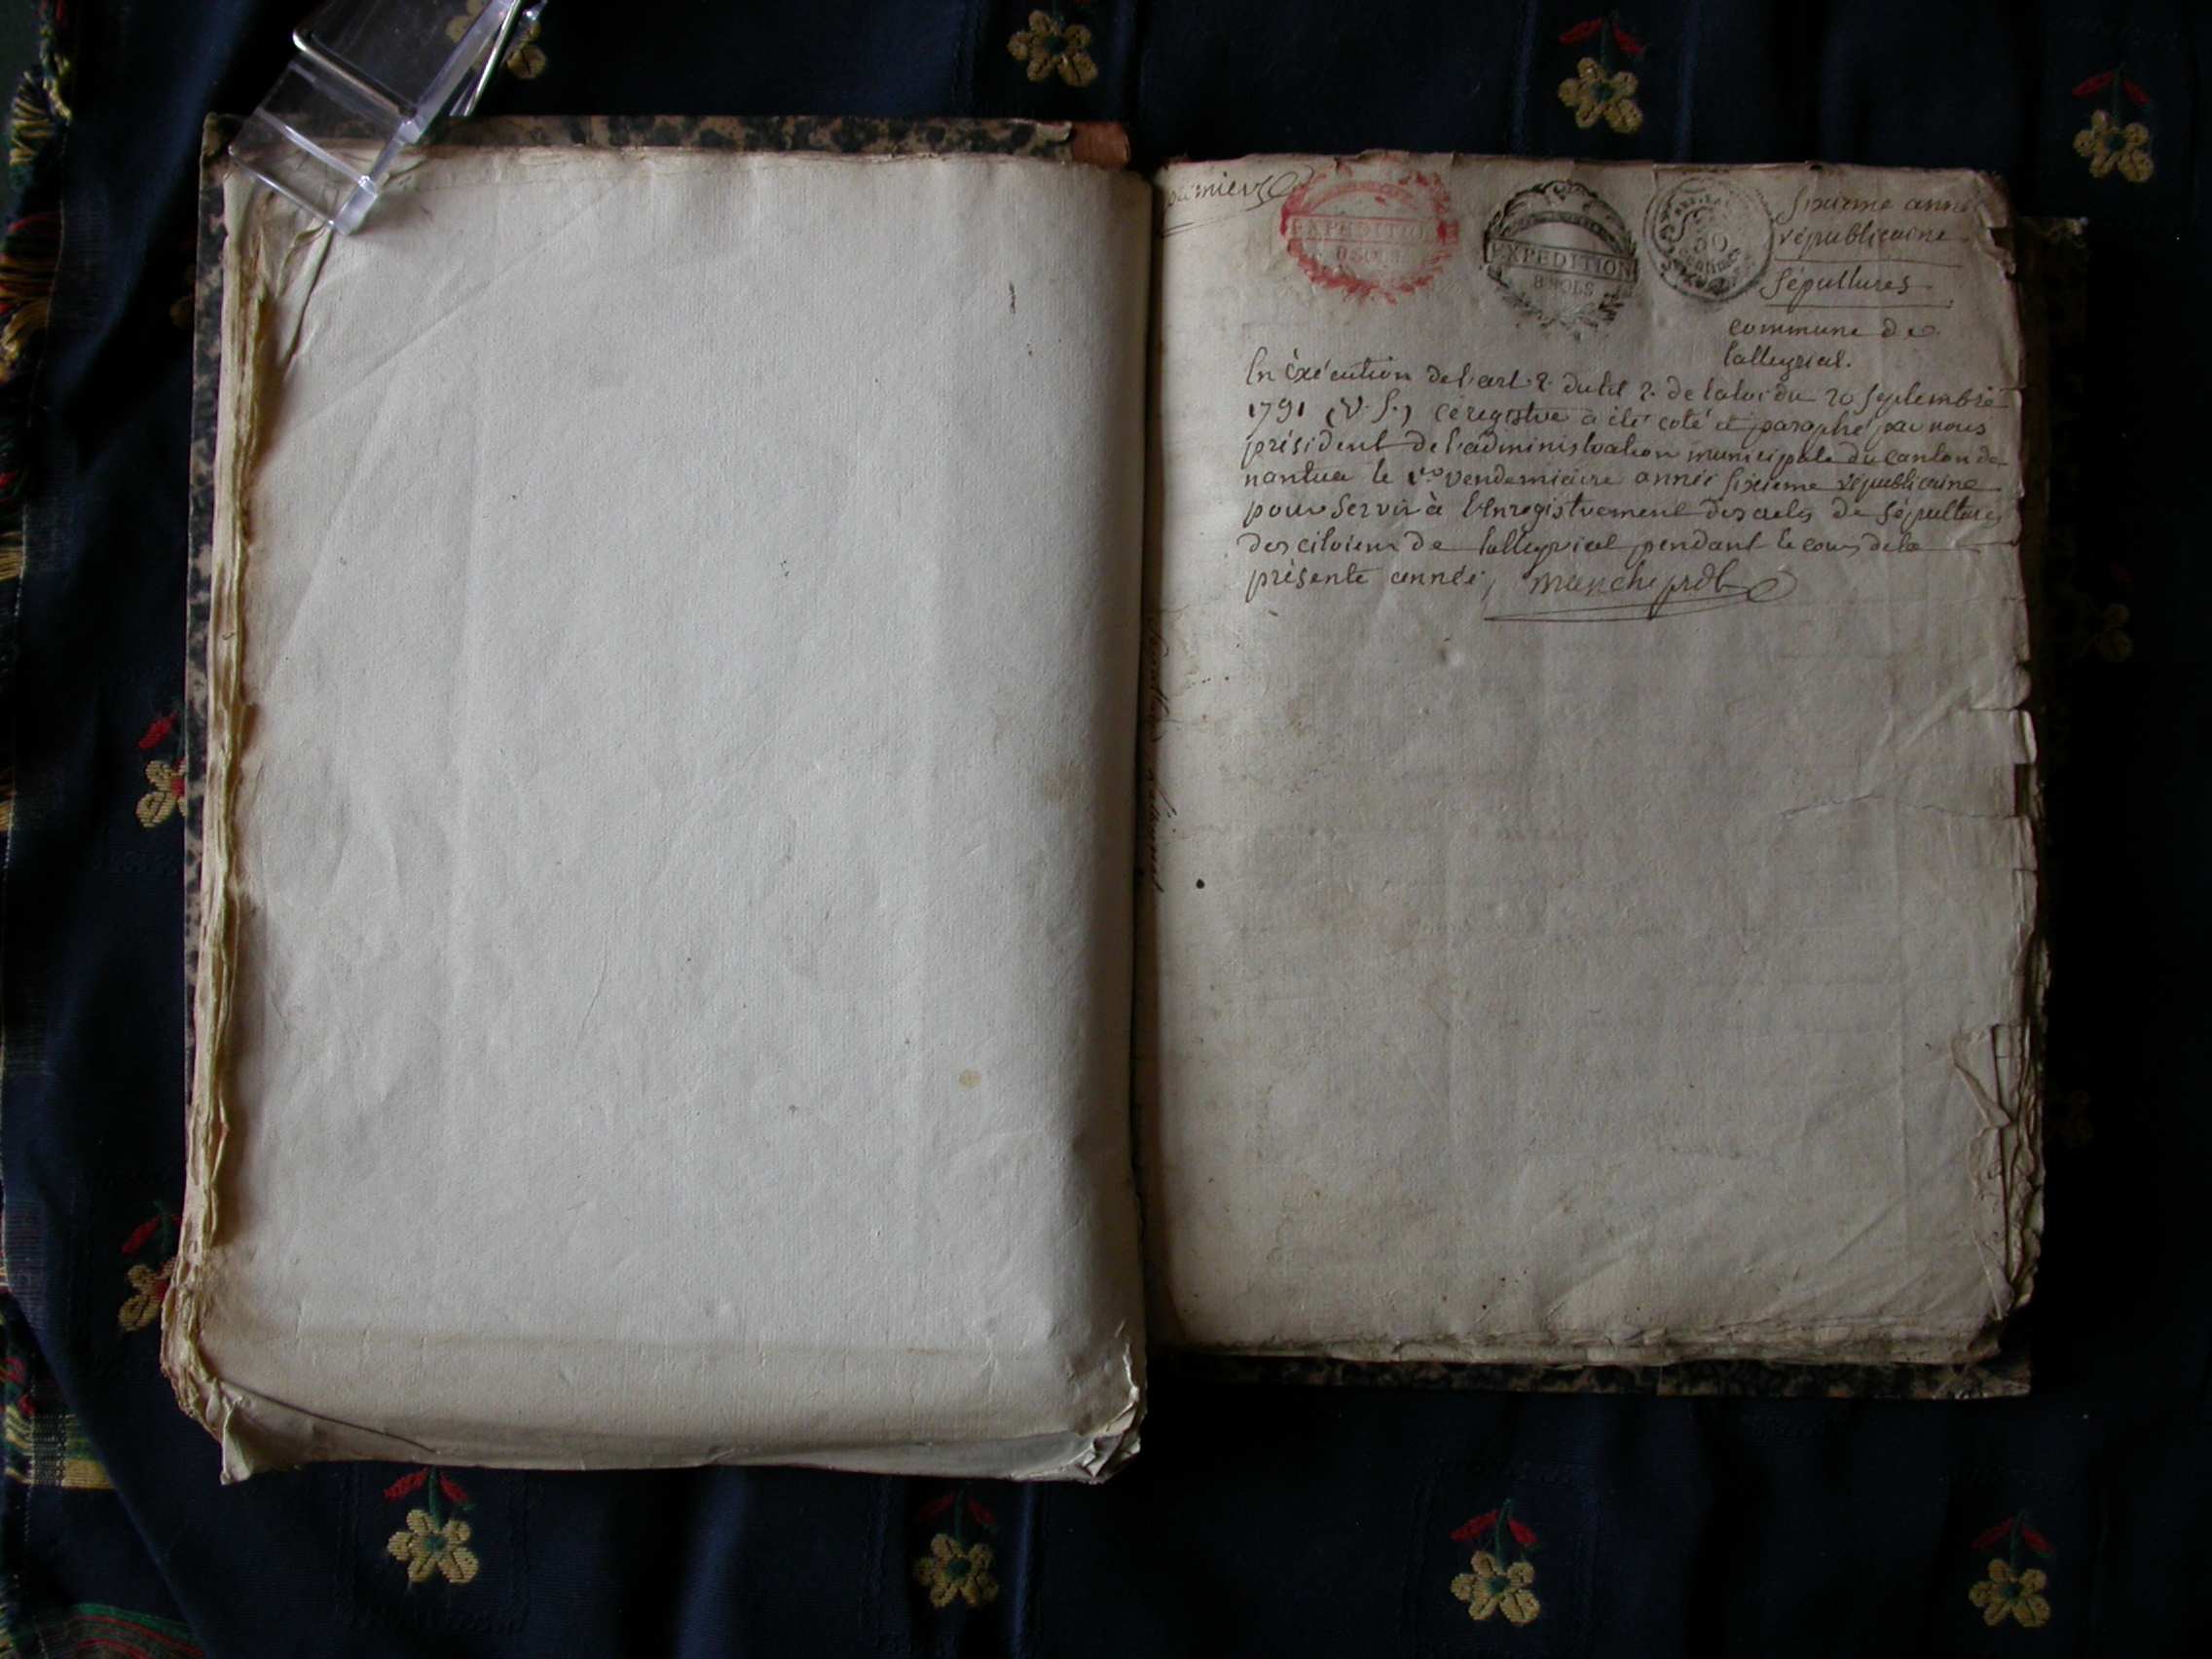 premier
EXPEDITION
8 SOLS
EXPEDITION
8 SOLS
50
centimes
sixieme année
républicaine
sépultures
commune de
lalleyriat.
En éxécution de l'art 2. du tit 2. de la loi du 20 septembre
1791 (V. S.) ce registre a été coté et paraphé par nous
président de l'administration municipale du canton de
nantua le 1.er vendemiaire année sixieme républicaine
pour servir à l'enregistrement des actes de sépultures
des citoiens de lalleyriat pendant le cours de la
présente année,